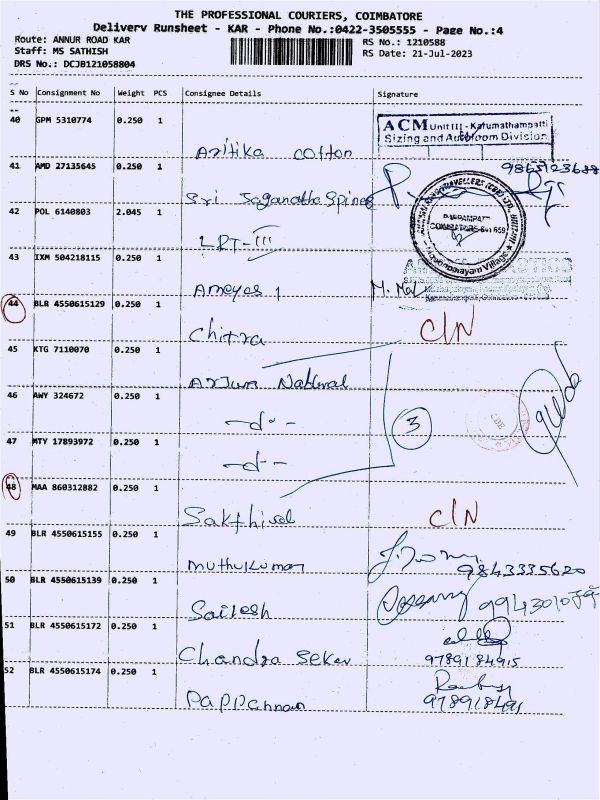 THE PROFESSIONAL COURIERS, COIMBATORE
Delivery Runsheet - KAR - Phone No.:0422-3505555 - Page No.:4
Route: ANNUR ROAD KAR
RS No.: 1210588
Staff: MS SATHISH
RS Date: 21-Jul-2023
DRS No.: DCJB121058804
S No Consignment No Weight PCS Consignee Details Signature
40 GPM 5310774 0.250 1
ACM Unit III - Katumathampatti
Sizing and Autoloom Division
Aritika cotton
41 AMD 27135645 0.250 1
Sri Jaganatha Spines
42 POL 6140803 2.045 1
LPT-III
43 IXM 504218115 0.250 1
Ameyas 1
44 BLR 4550615129 0.250 1
Chitra C/N
45 KTG 7110070 0.250 1
Arjun National
46 AWY 324672 0.250 1
-do-
3
47 MTY 17893972 0.250 1
-do-
48 MAA 860312882 0.250 1
Sakthivel C/N
49 BLR 4550615155 0.250 1
Muthukumar 9843335620
50 BLR 4550615139 0.250 1
Sailesh
51 BLR 4550615172 0.250 1
Chandra Sekar 9789184915
52 BLR 4550615174 0.250 1
Pappannan